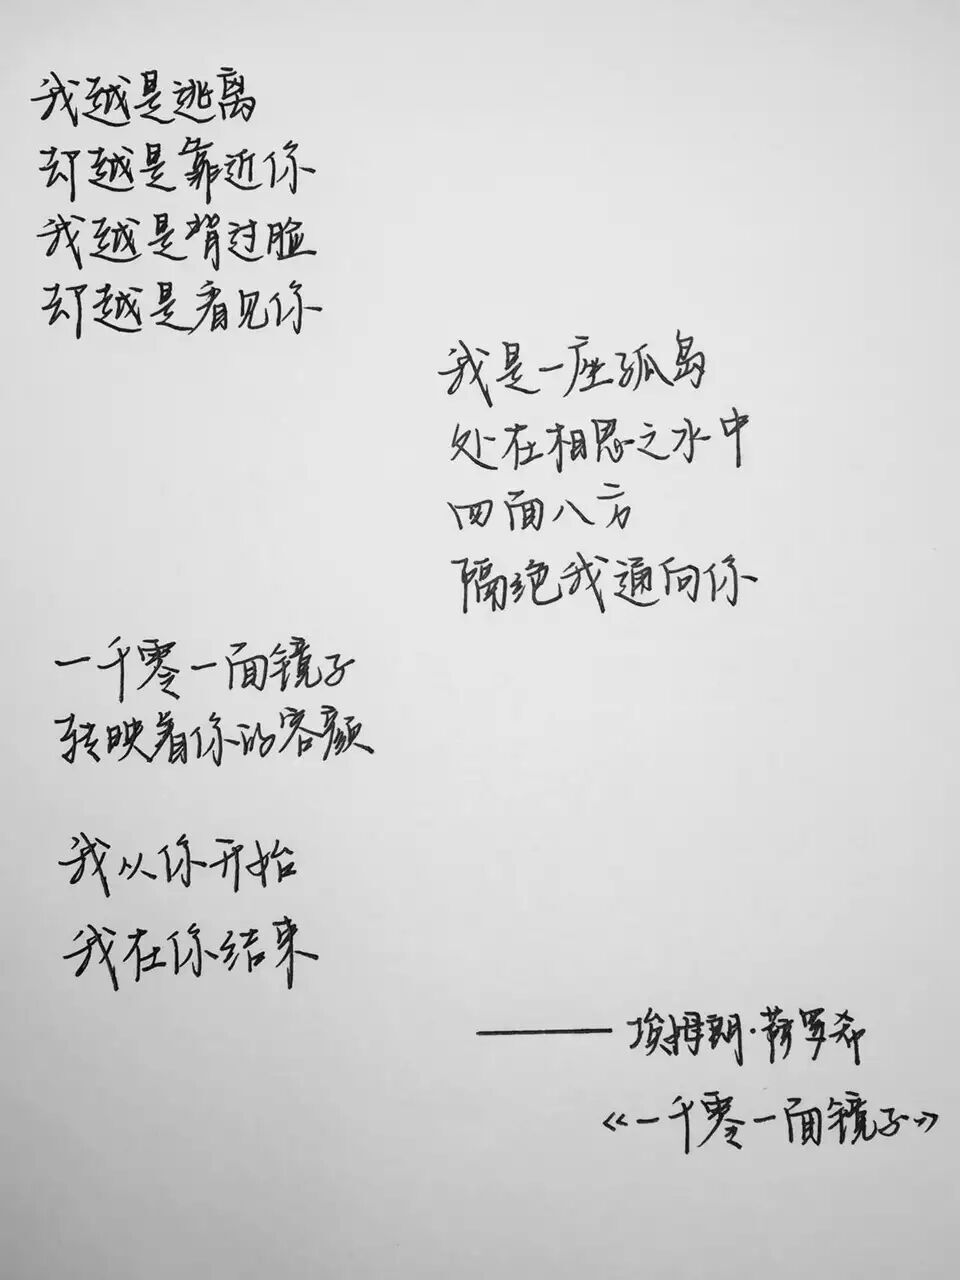 我越是逃离
却越是靠近你
我越是背过脸
却越是看见你
我是一座孤岛
处在相思之水中
四面八方
隔绝我通向你
一千零一面镜子
转映着你的容颜
我从你开始
我在你结束
——埃姆朗·萨罗希
《一千零一面镜子》